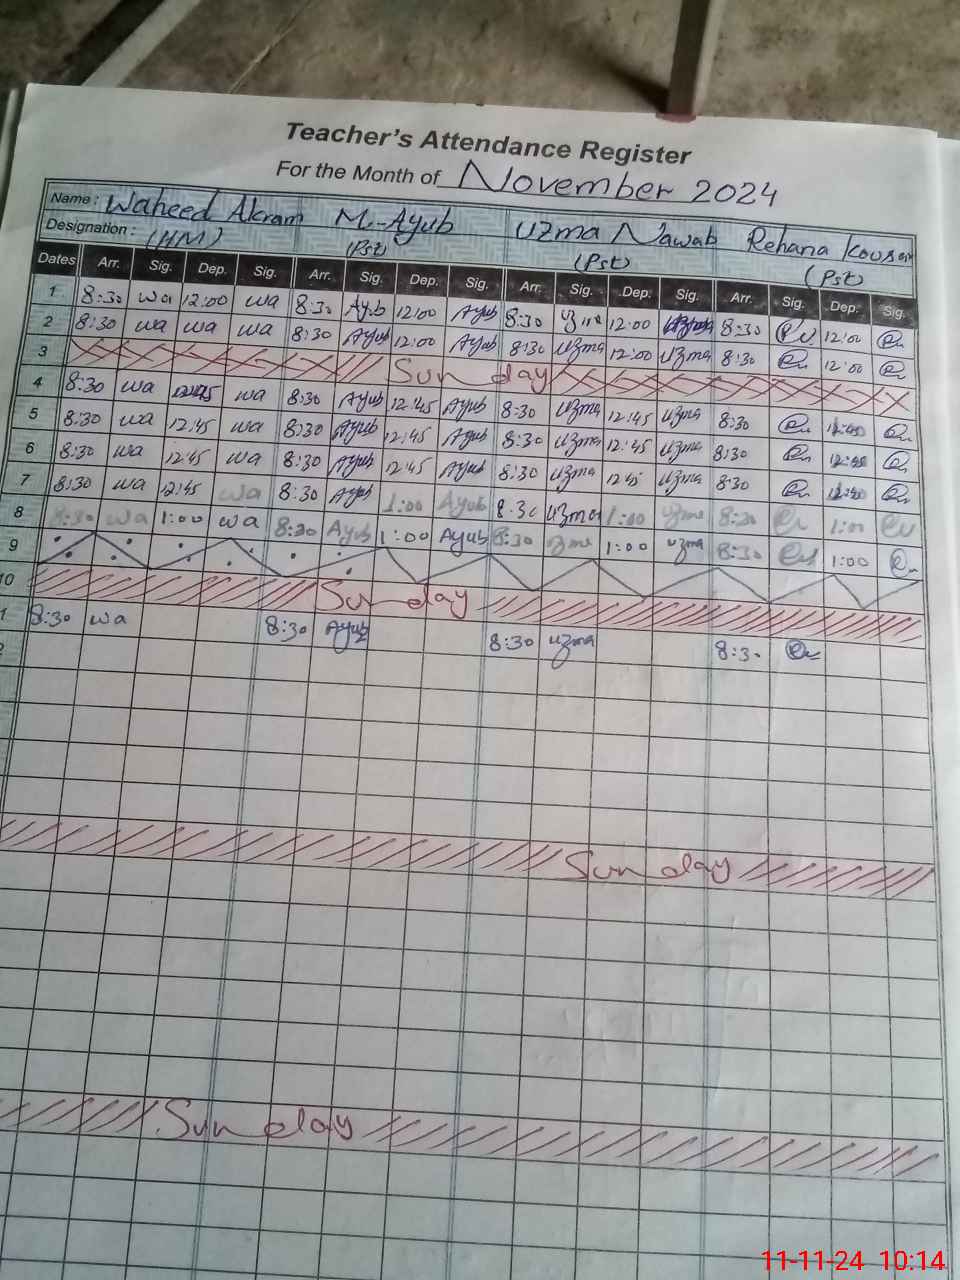 Teacher's Attendance Register
For the Month of November 2024
Name : Waheed Akram M. Ayub Uzma Nawab Rehana Kousar
Designation : (HM) (Pst) (Pst) (Pst)
Dates Arr. Sig. Dep. Sig. Arr. Sig. Dep. Sig. Arr. Sig. Dep. Sig. Arr. Sig. Dep. Sig.
1 8:30 wa 12:00 wa 8:30 Ayub 12:00 Ayub 8:30 Uzma 12:00 Uzma 8:30 12:00
2 8:30 wa wa wa 8:30 Ayub 12:00 Ayub 8:30 Uzma 12:00 Uzma 8:30 12:00
3 Sunday
4 8:30 wa 12:45 wa 8:30 Ayub 12:45 Ayub 8:30 Uzma 12:45 Uzma 8:30
5 8:30 wa 12:45 wa 8:30 Ayub 12:45 Ayub 8:30 Uzma 12:45 Uzma 8:30
6 8:30 wa 12:45 wa 8:30 Ayub 12:45 Ayub 8:30 Uzma 12:45 Uzma 8:30
7 8:30 wa 12:45 wa 8:30 Ayub 1:00 Ayub 8:30 Uzma 1:00 Uzma 8:30 1:00
8 8:30 wa 1:00 wa 8:30 Ayub 1:00 Ayub 8:30 Uzma 1:00 Uzma 8:30 1:00
9
10 Sunday
1 8:30 wa 8:30 Ayub 8:30 Uzma 8:30
2
Sunday
Sunday
11-11-24 10:14